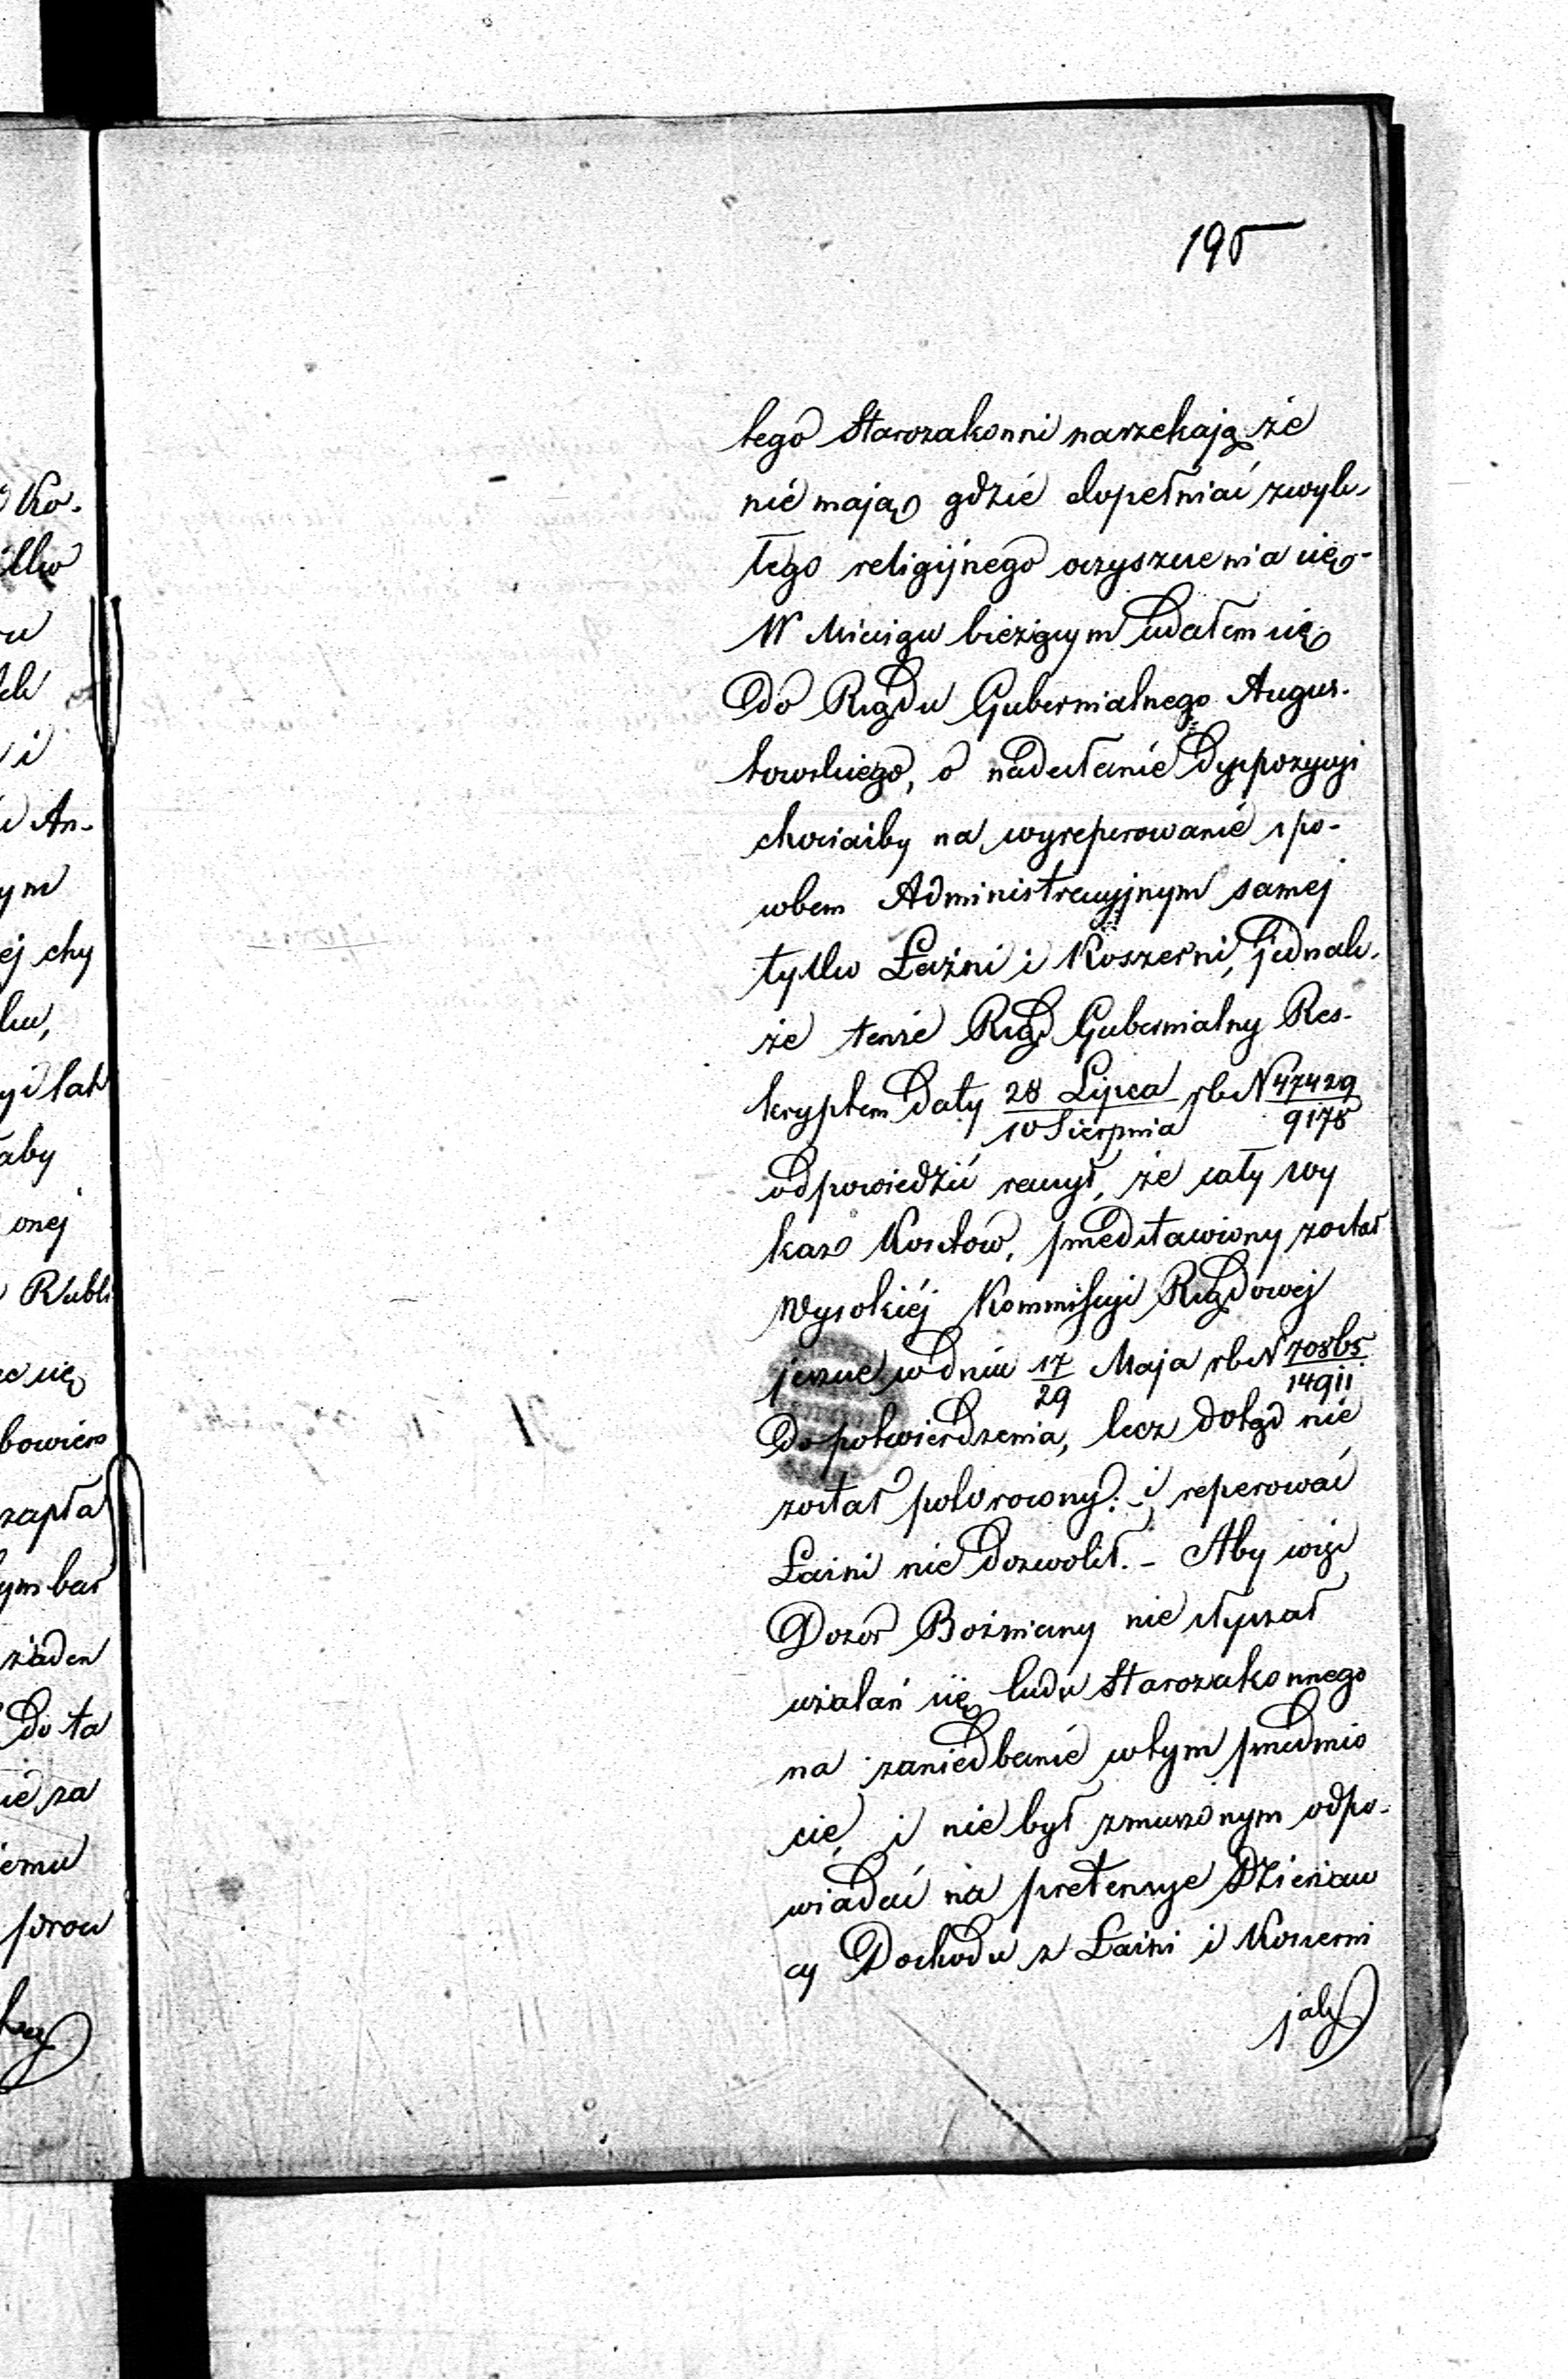 195
tego Starozakonni narzekają że
nie mają gdzie dopełniać zwyk-
łego religijnego oczyszczenia się-
W Miesiącu bieżącym udałem się
do Rządu Gubernialnego Augus-
towskiego, o nadesłanie dyspozycyi
chociażby na wyreperowanie spo-
sobem Administracyjnym samej
tylko Łaźni i Koszerni, jednak-
że tenże Rząd Gubernialny Res-
kryptem daty 28 Lipca / 10 Sierpnia rb N 47429 / 9178
odpowiedzieć raczył, że cały wy
kaz Kosztów, przedstawiony został
Wysokiéj Kommissyi Rządowej
jeszcze w dniu 17 / 29 Maja rb N 70865 / 14911
do potwierdzenia, lecz dotąd nie
został powrócony: i reperować
Łaźni nie dozwolił. – Aby więc
Dozór Bożniczny nie słyszał
użalań się ludu Starozakonnego
na zaniedbanie w tym przedmio
cie, i nie był zmuszonym odpo-
wiadać na pretensye Dzierżaw
cy Dochodu z Łaźni i Koszerni
jak
Ko-
i
An-
ym
ej chy
aby
onej
Rubli
się
bowiem
zapła
żaden
do ta
ie za
iemu